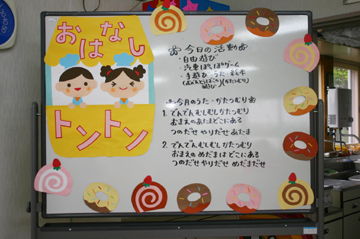 おはなし
トントン
今日の活動
・自由遊び
・汽車ぽっぽゲーム
・手遊び
今月のうた・かたつむり
1. でんでんむしむしかたつむり
おまえのあたまはどこにある
つのだせ やりだせ あたまだせ
2. でんでんむしむしかたつむり
おまえのめだまはどこにある
つのだせ やりだせ めだまだせ